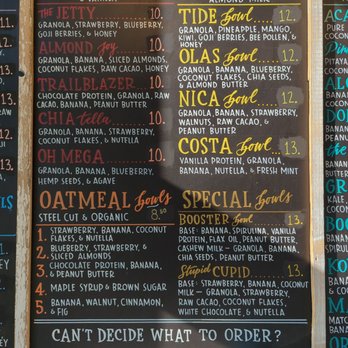 THE JETTY 10.
GRANOLA, STRAWBERRY, BLUEBERRY,
GOJI BERRIES, & HONEY
ALMOND Joy 10.
GRANOLA, BANANA, SLICED ALMONDS,
COCONUT FLAKES, RAW CACAO, HONEY
TRAILBLAZER 10.
CHOCOLATE PROTEIN, GRANOLA, RAW
CACAO, BANANA, PEANUT BUTTER
CHIA tella 10.
GRANOLA, BANANA, STRAWBERRY,
COCONUT FLAKES, & NUTELLA
OH MEGA 10.
GRANOLA, BANANA, BLUEBERRY,
HEMP SEEDS, & AGAVE
OATMEAL bowls
STEEL CUT & ORGANIC 8.50
1. STRAWBERRY, BANANA, COCONUT
FLAKES, & NUTELLA
2. BLUEBERRY, STRAWBERRY, &
SLICED ALMONDS
3. CHOCOLATE PROTEIN, BANANA,
& PEANUT BUTTER
4. MAPLE SYRUP & BROWN SUGAR
5. BANANA, WALNUT, CINNAMON,
& FIG
ALMOND MILK
TIDE bowl 12.
GRANOLA, PINEAPPLE, MANGO,
KIWI, GOJI BERRIES, BEE POLLEN, &
HONEY
OLAS bowl 12.
GRANOLA, BANANA, BLUEBERRY,
COCONUT FLAKES, CHIA SEEDS,
& ALMOND BUTTER
NICA bowl 12.
GRANOLA, BANANA, STRAWBERRY,
WALNUTS, RAW CACAO, &
PEANUT BUTTER
COSTA bowl 13.
VANILLA PROTEIN, GRANOLA,
BANANA, NUTELLA, & FRESH MINT
SPECIAL bowls
BOOSTER bowl 13.
BASE: BANANA, SPIRULINA, VANILLA
PROTEIN, FLAX OIL, PEANUT BUTTER,
CASHEW MILK - GRANOLA, BANANA,
CHIA SEEDS, PEANUT BUTTER
Stupid CUPID 13.
BASE: STRAWBERRY, BANANA, COCONUT
MILK - GRANOLA, STRAWBERRY,
RAW CACAO, COCONUT FLAKES,
WHITE CHOCOLATE, & NUTELLA
CAN'T DECIDE WHAT TO ORDER?